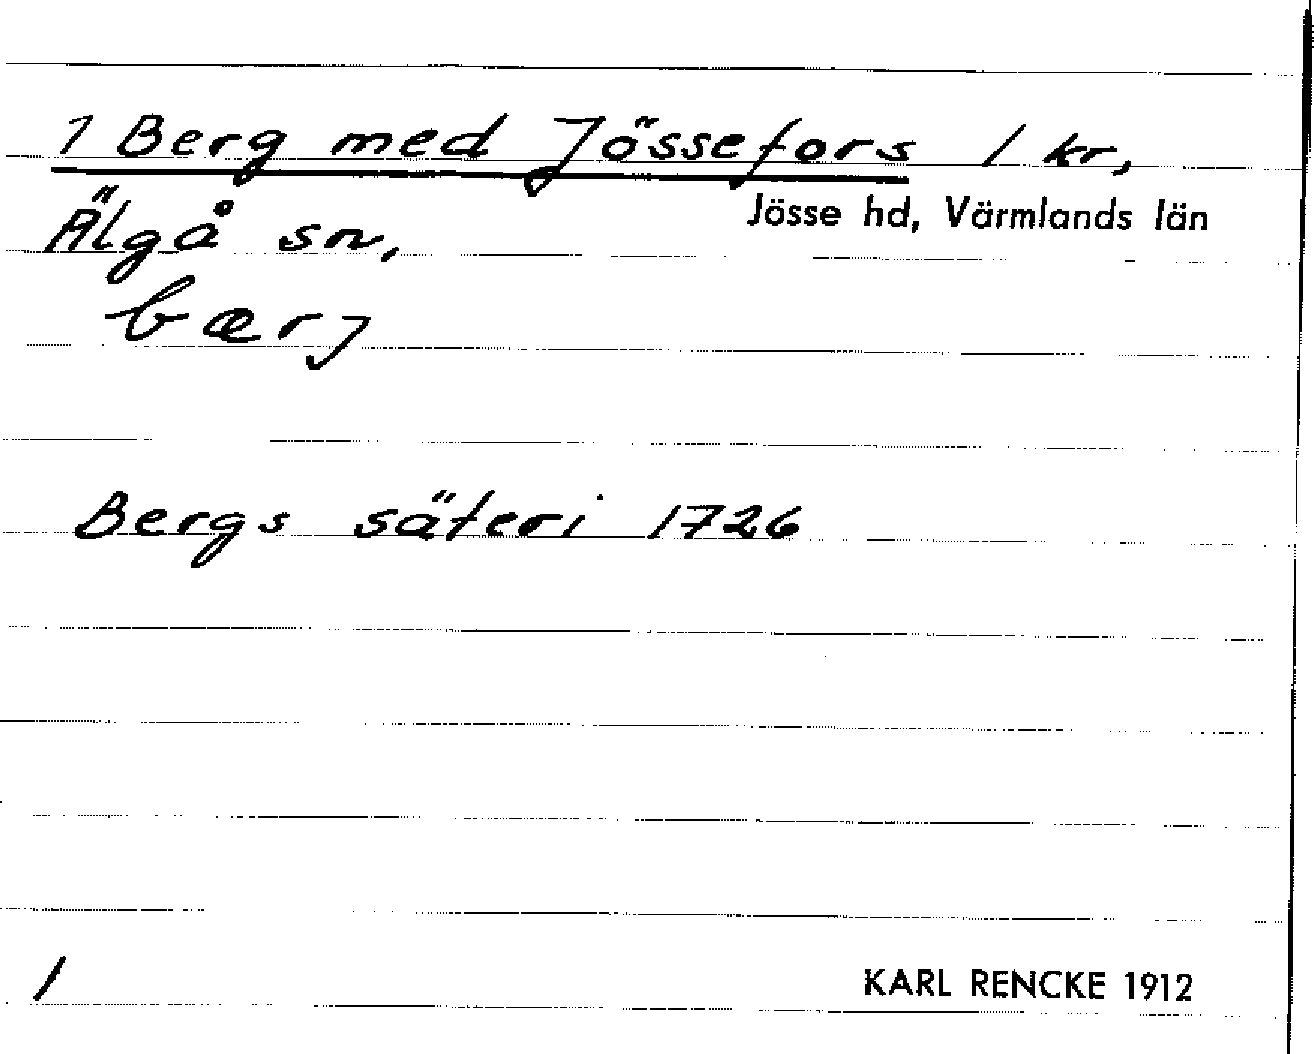 1 Berg med Jössefors 1 kr,
Jösse hd, Värmlands län
Älgå sn,
bærj
Bergs säteri 1726
1
KARL RENCKE 1912